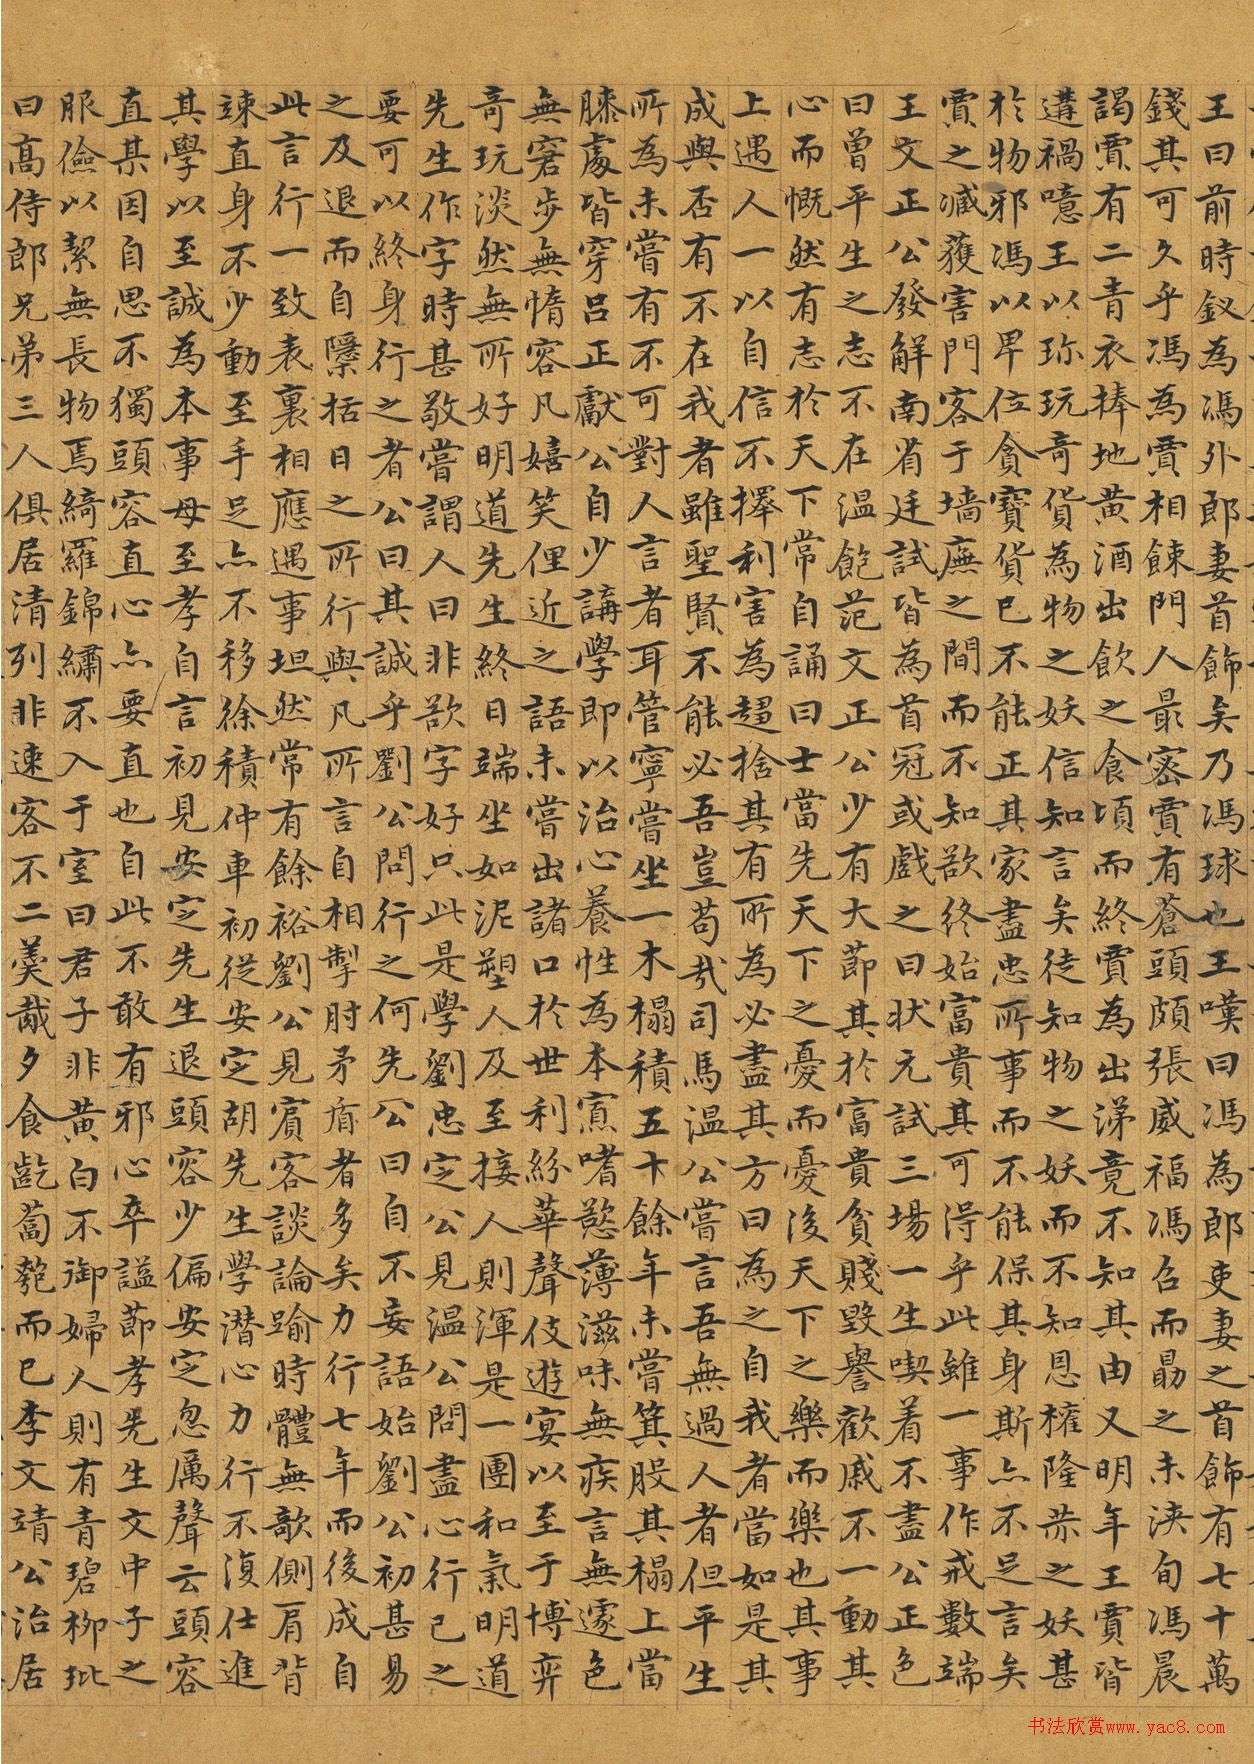 王曰前時釵為馮外郎妻首飾矣乃馮球也王嘆曰馮為郎吏妻之首飾有七十萬
錢其可久乎馮為賈相餗門人最密賈有蒼頭頗張威福馮召而勗之未浹旬馮晨
謁賈有二青衣捧地黃酒出飲之食頃而終賈為出涕竟不知其由又明年王賈皆
遘禍噫王以珎玩奇貨為物之妖信知言矣徒知物之妖而不知恩權隆赫之妖甚
於物邪馮以卑位貪寶貨已不能正其家盡忠所事而不能保其身斯亦不足言矣
賈之臧獲害門客于墻廡之間而不知欲終始富貴其可得乎此雖一事作戒數端
王文正公發解南省廷試皆為首冠或戲之曰狀元試三場一生喫着不盡公正色
曰曾平生之志不在溫飽范文正公少有大節其於富貴貧賤毀譽歡戚不一動其
心而慨然有志於天下常自誦曰士當先天下之憂而憂後天下之樂而樂也其事
上遇人一以自信不擇利害為趨捨其有所為必盡其方曰為之自我者當如是其
成與否有不在我者雖聖賢不能必吾豈苟哉司馬溫公嘗言吾無過人者但平生
所為未嘗有不可對人言者耳管寧嘗坐一木榻積五十餘年未嘗箕股其榻上當
膝處皆穿呂正獻公自少講學即以治心養性為本寡嗜慾薄滋味無疾言無遽色
無窘步無惰容凡嬉笑俚近之語未嘗出諸口於世利紛華聲伎遊宴以至于博弈
奇玩淡然無所好明道先生終日端坐如泥塑人及至接人則渾是一團和氣明道
先生作字時甚敬嘗謂人曰非欲字好只此是學劉忠定公見溫公問盡心行己之
要可以終身行之者公曰其誠乎劉公問行之何先公曰自不妄語始劉公初甚易
之及退而自檃括日之所行與凡所言自相掣肘矛盾者多矣力行七年而後成自
此言行一致表裏相應遇事坦然常有餘裕劉公見賓客談論踰時體無欹側肩背
竦直身不少動至手足亦不移徐積仲車初從安定胡先生學潛心力行不復仕進
其學以至誠為本事母至孝自言初見安定先生退頭容少偏安定忽厲聲云頭容
直某因自思不獨頭容直心亦要直也自此不敢有邪心卒謚節孝先生文中子之
服儉以絜無長物焉綺羅錦繡不入于室曰君子非黃白不御婦人則有青碧柳玭
曰高侍郎兄弟三人俱居清列非速客不二羹胾夕食齕蔔匏而已李文靖公治居
书法欣赏www.yac8.com